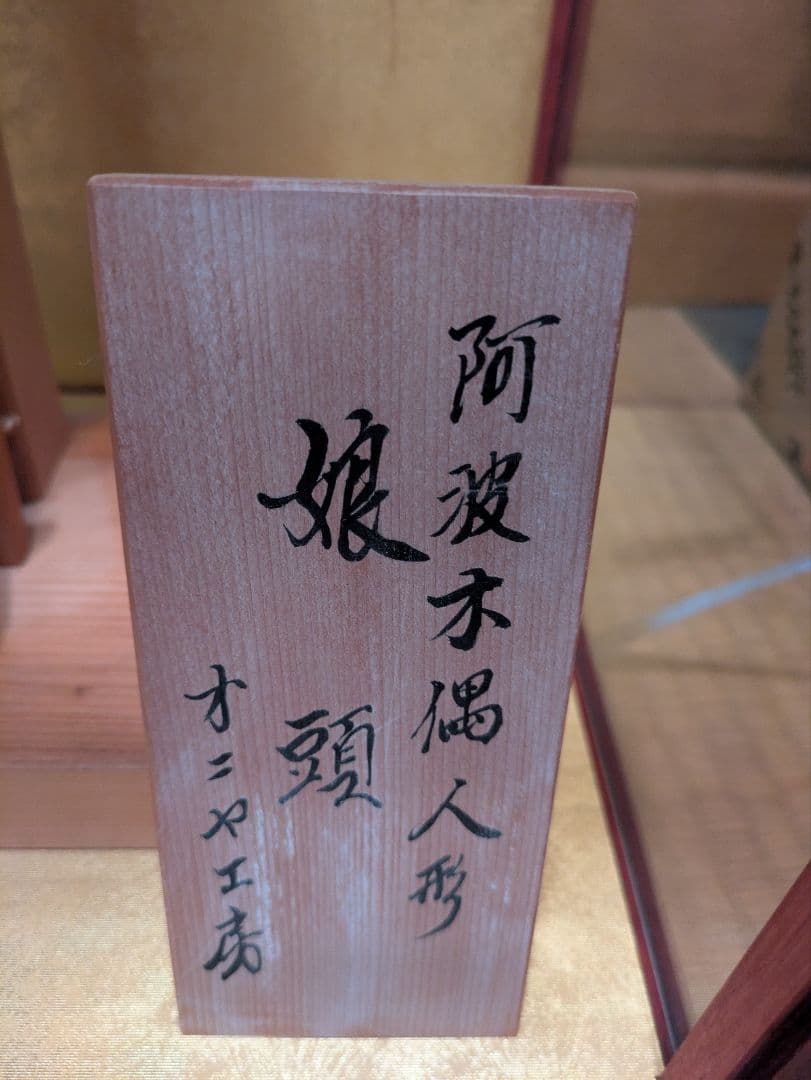 阿波木偶人形
娘頭
オニヤ工房